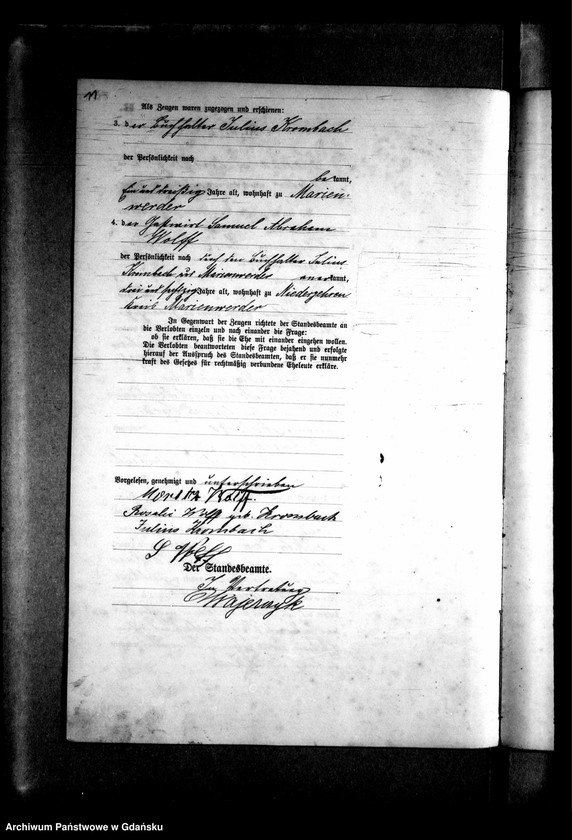 Als Zeugen waren zugezogen und erschienen:
3. der Buchhalter Julius Krombach
der Persönlichkeit nach
bekannt,
Ein und dreißig Jahre alt, wohnhaft zu Marien-
werder
4. der Gastwirt Samuel Abraham
Wolff
der Persönlichkeit nach durch den Buchhalter Julius
Krombach aus Marienwerder anerkannt,
drei und sechzig Jahre alt, wohnhaft zu Niederzehren
Kreis Marienwerder
In Gegenwart der Zeugen richtete der Standesbeamte an
die Verlobten einzeln und nach einander die Frage:
ob sie erklären, daß sie die Ehe mit einander eingehen wollen.
Die Verlobten beantworteten diese Frage bejahend und erfolgte
hierauf der Ausspruch des Standesbeamten, daß er sie nunmehr
kraft des Gesetzes für rechtmäßig verbundene Eheleute erkläre.
Vorgelesen, genehmigt und unterschrieben
Moritz Wolff.
Rosalie Wolff geb. Krombach
Julius Krombach
S Wolff
Der Standesbeamte.
In Vertretung
Archiwum Państwowe w Gdańsku